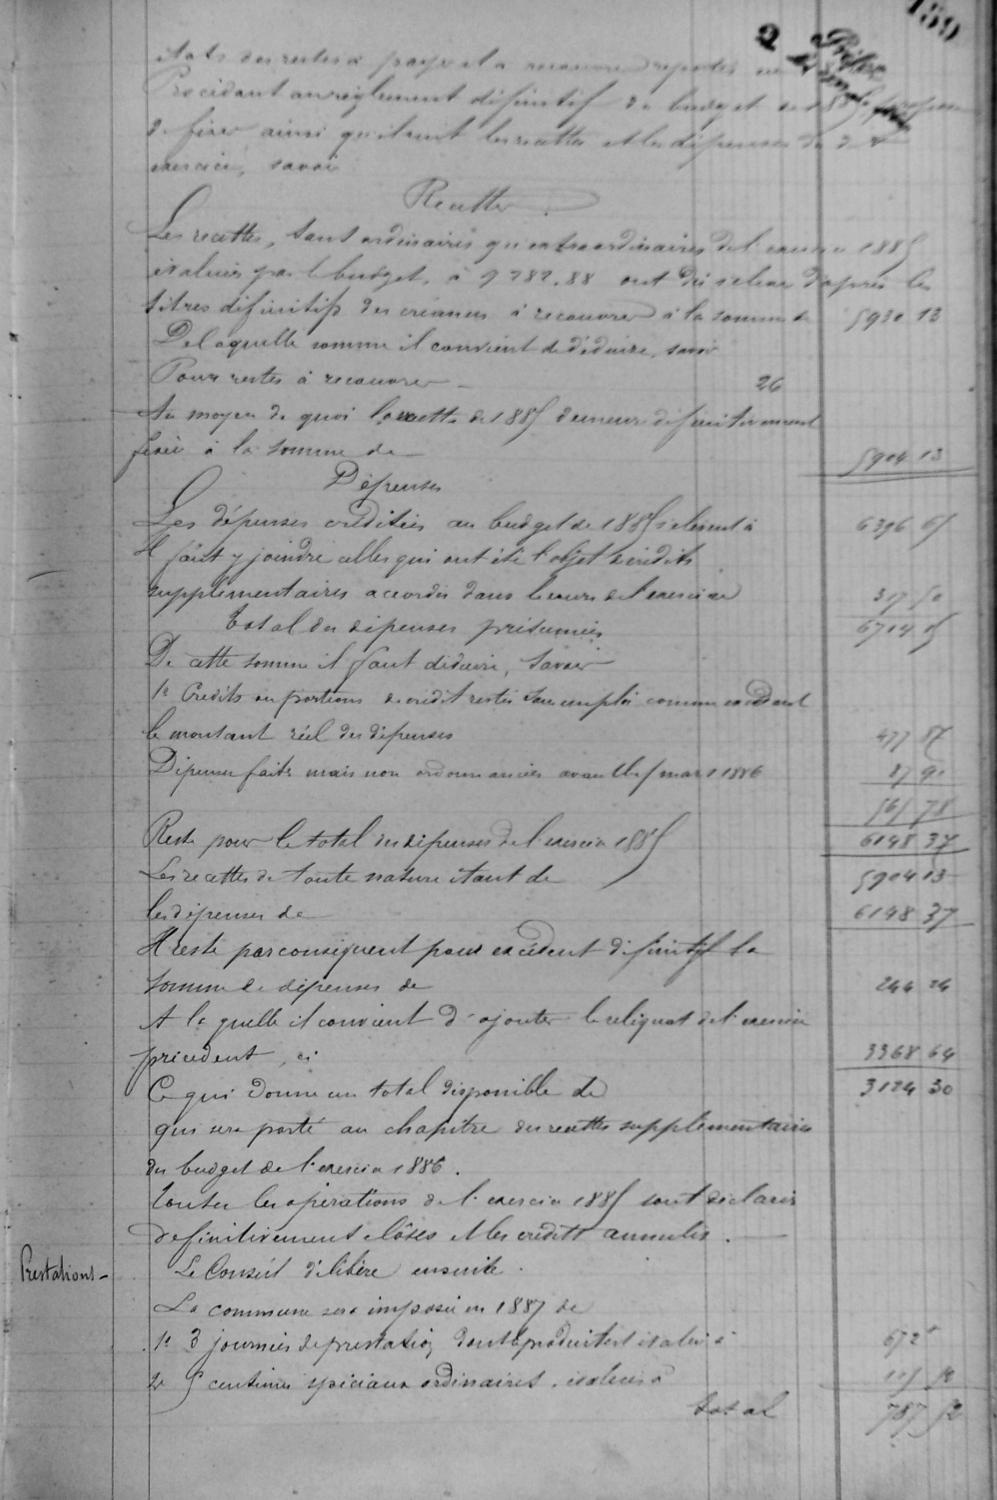 159
états des restes à payer et à recouvrer reportés
Procédant au règlement définitif du budget de 1885, propose
de fixer ainsi qu'il suit les recettes et les dépenses du dt
exercice, savoir
Recettes.
Les recettes, tant ordinaires qu'extraordinaires de l'exercice 1885
évaluées par le budget, à 9282.88 ont dû s'élever d'après les
titres définitifs des créances à recouvrer à la somme de 5930 13
De laquelle somme il convient de déduire, savoir
Pour restes à recouvrer - 26
Au moyen de quoi la recette de 1885 demeure définitivement
fixée à la somme de - 5904 13
Dépenses
Les dépenses créditées au budget de 1885 s'élèvent à 6396 65
Il faut y joindre celles qui ont été l'objet de crédits
supplémentaires accordés dans le cours de l'exercice 317 50
Total des dépenses présumées 6714 15
De cette somme il faut déduire, savoir
1º Crédits ou portions de crédit restés sans emploi comme excédant
le montant réel des dépenses 477 87
Dépenses faites mais non ordonnancées avant le 15 mars 1886 87 91
565 78
Reste pour le total des dépenses de l'exercice 1885 6148 37
Les recettes de toute nature étant de 5904 13
les dépenses de 6148 37
Il reste par conséquent pour excédent définitif la
somme de dépenses de 244 24
A laquelle il convient d'ajouter le reliquat de l'exercice
précédent, ci 3368 64
Ce qui donne un total disponible de 3124 30
qui sera porté au chapitre des recettes supplémentaires
du budget de l'exercice 1886.
Toutes les opérations de l'exercice 1885 sont déclarées
définitivement closes et les crédits annulés. -
Prestations - Le Conseil délibère ensuite.
La commune sera imposée en 1887 de
1º 3 journées de prestation dont le produit est évalué à 672
2º 5 centimes spéciaux ordinaires, évalués à 115 52
total 787 52